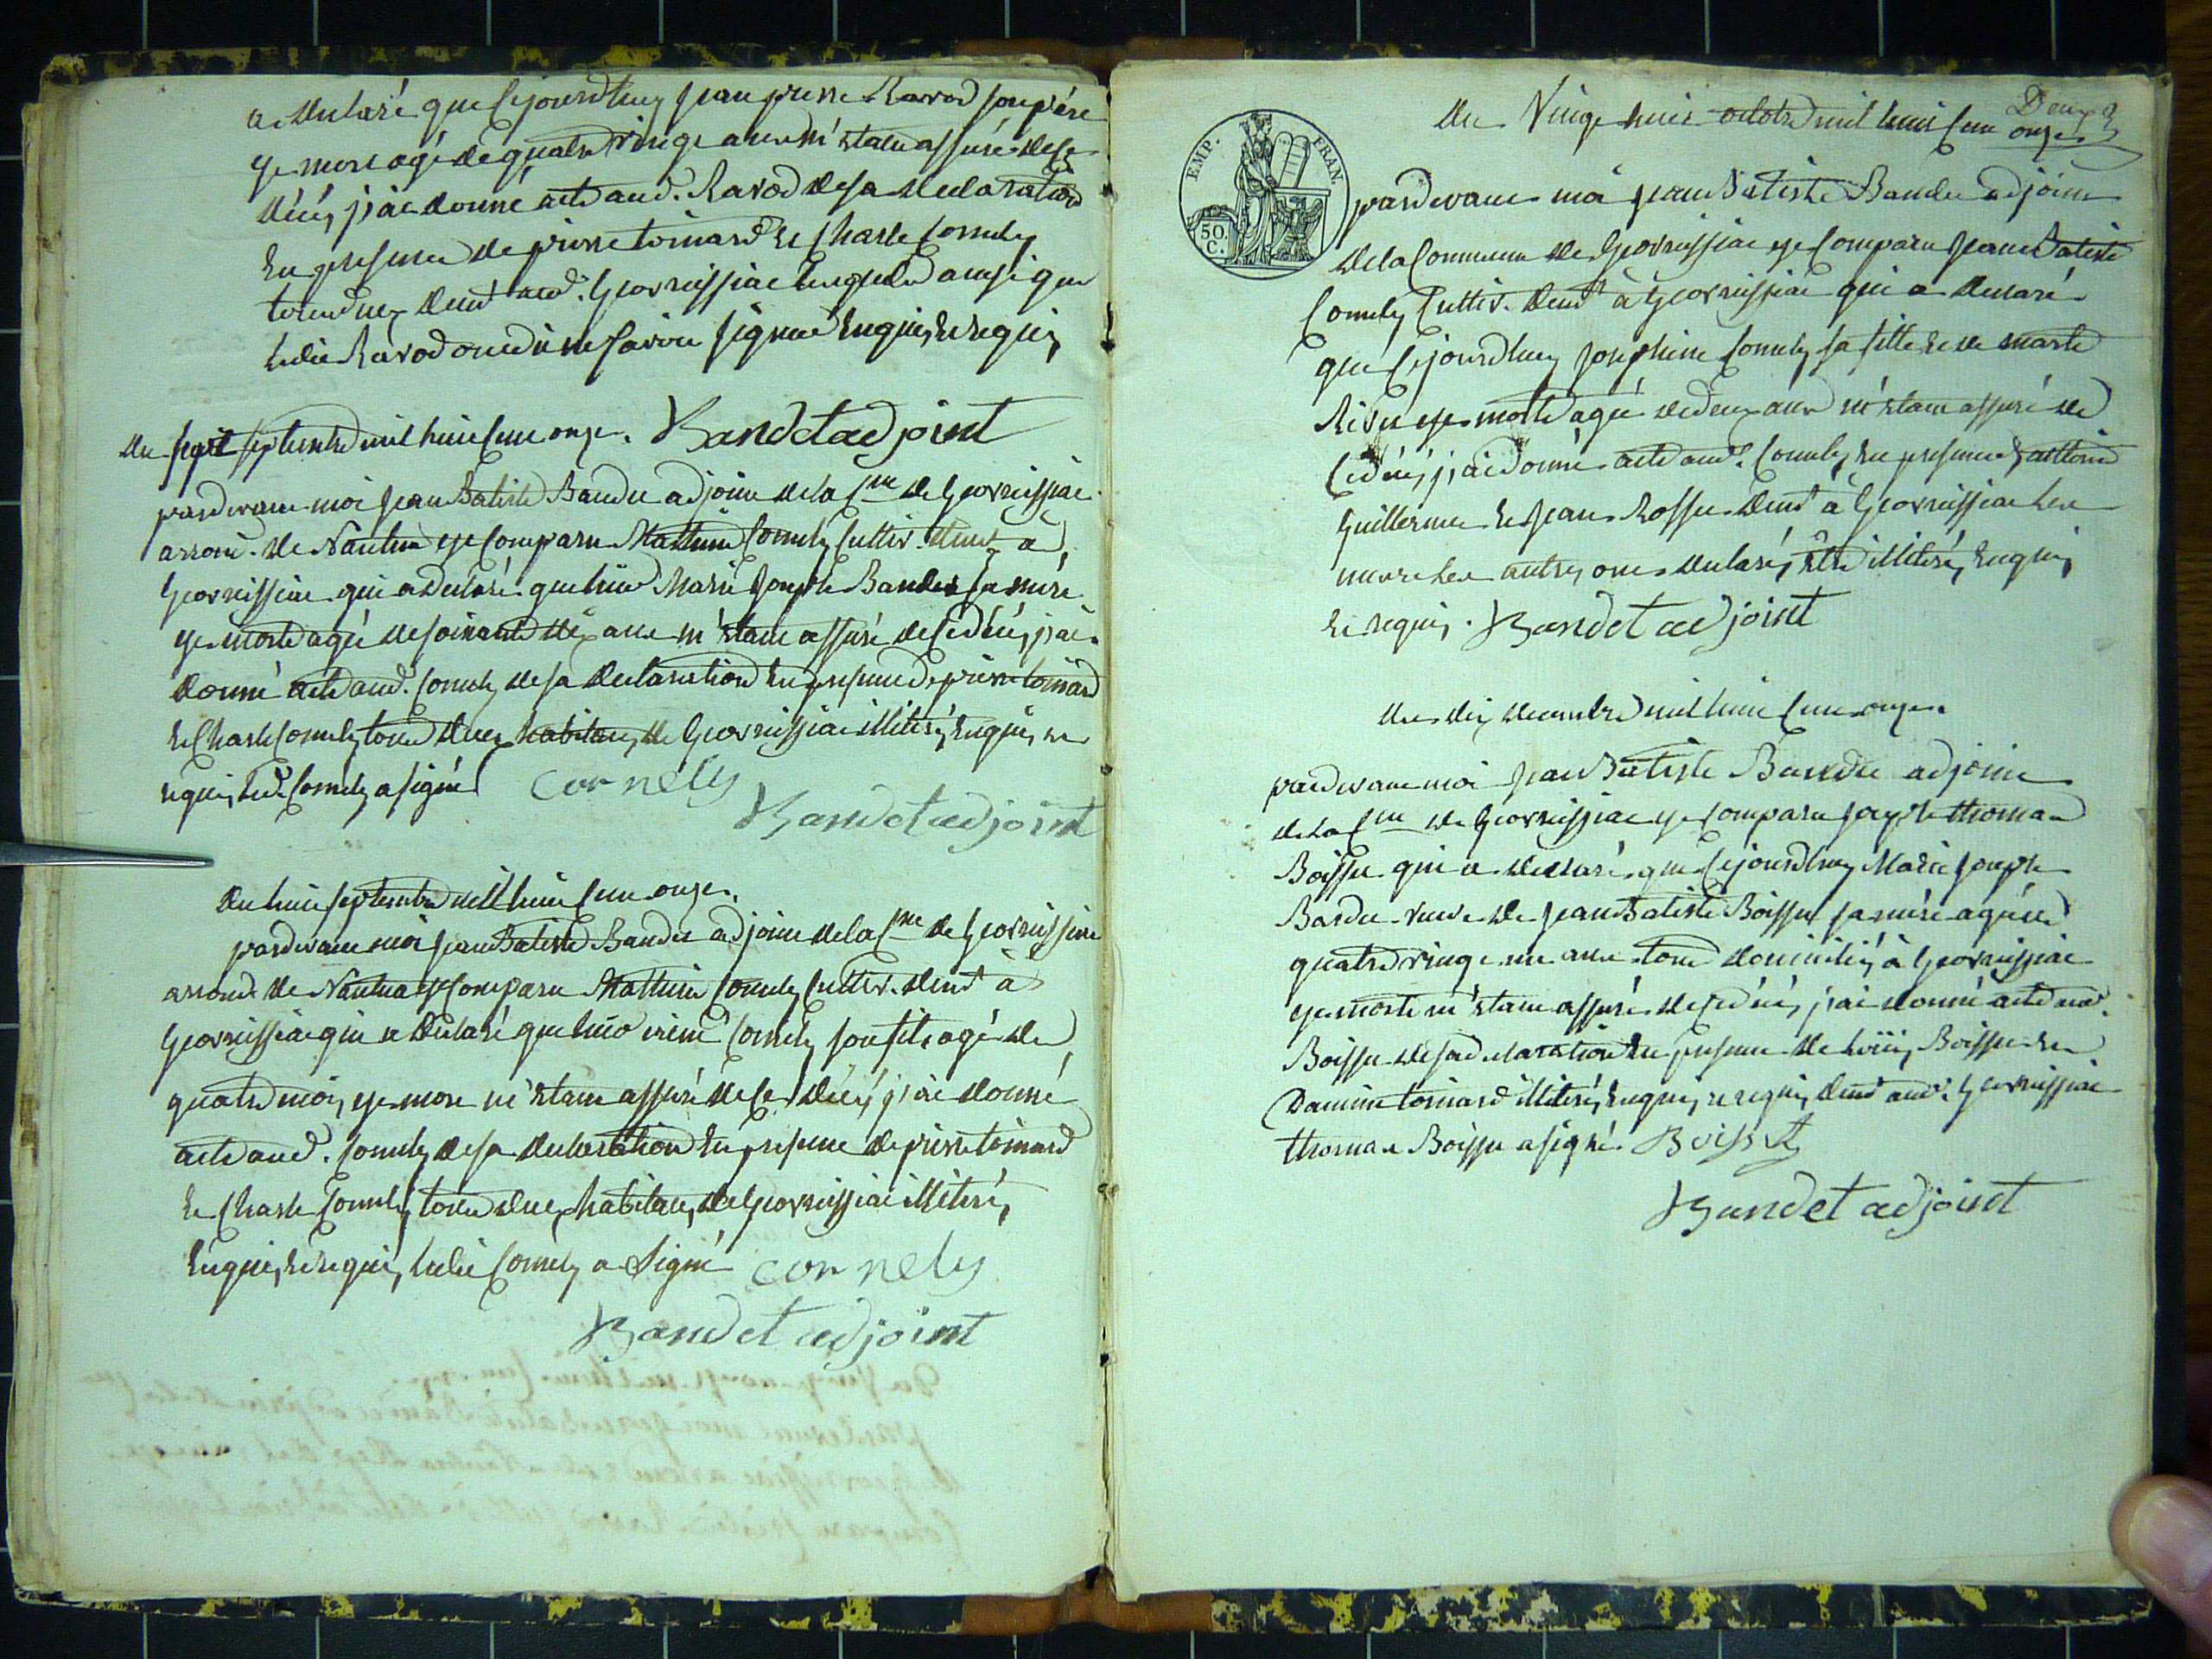 a declaré que cejourdhuy jean pierre Ravod son pére
est mort agé de quatrevingt ans m'étant assuré de ce
décés j'ai donné acte aud. Ravod de sa declaration
En presence de pierre toinard et Charle Cornely
tous deux demt aud. Geovrissiac lesquels ainsi que
ledit Ravod ont dit ne savoir signer Enquis et requis
Bandet adjoint
du sept septembre mil huit cent onze.
pardevant moi jean Batiste Bandet adjoint de la Cne de Geovrissiac
arrond. de Nantua est comparu Mathieu Cornely cultiv. demt a
Geovrissiac qui a declaré que hier Marie Joseph Bandet sa mere
est morte agée de soixante dix ans m'étant assuré de ce décés j'ai
donné acte aud. Cornely de sa declaration En presence de pierre toinard
et Charle Cornely tous deux habitans de Geovrissiac illiterés Enquis et
requis led. Cornely a signé cornely
Bandet adjoint
du huit septembre mil huit cent onze.
pardevant moi jean Batiste Bandet adjoint de la Cne de Geovrissiac
arrond. de Nantua est comparu Mathieu Cornely cultiv. demt à
Geovrissiac qui a declaré que hier Cornely son fils agé de
quatre mois est mort m'étant assuré de ce décés j'ai donné
acte aud. Cornely de sa declaration En presence de pierre toinard
et Charle Cornely tous deux habitans de Geovrissiac illiterés
Enquis et requis ledit Cornely a signé cornely
Bandet adjoint
Deux
du Vingt huit octobre mil huit cent onze
EMP. FRAN.
50 C.
pardevant moi jean Batiste Bandet adjoint
de la Commune de Geovrissiac est comparu jean Batiste
Cornely cultiv. demt à Geovrissiac qui a declaré
que cejourdhuy josephine Cornely sa fille et de marie
est morte agée de deux ans m'étant assuré de
ce décés j'ai donné acte aud. Cornely En presence d'antoine
Guillermet et jean Rosset demt à Geovrissiac les
uns et les autres ont declarés être illiterés Enquis
et requis. Bandet adjoint
du dix decembre mil huit cent onze
pardevant moi jean Batiste Bandet adjoint
de la Cne de Geovrissiac est comparu joseph thomas
Boisset qui a declaré que cejourdhuy Marie joseph
Bardet veuve de jean Batiste Boisset sa mére agée de
quatrevingt un ans tous domiciliés à Geovrissiac
est morte m'étant assuré de ce décés j'ai donné acte aud.
Boisset de sa declaration En presence de Loüis Boisset et
toinard illiterés Enquis et requis demt aud. Geovrissiac
thomas Boisset a signé. Boisset
Bandet adjoint